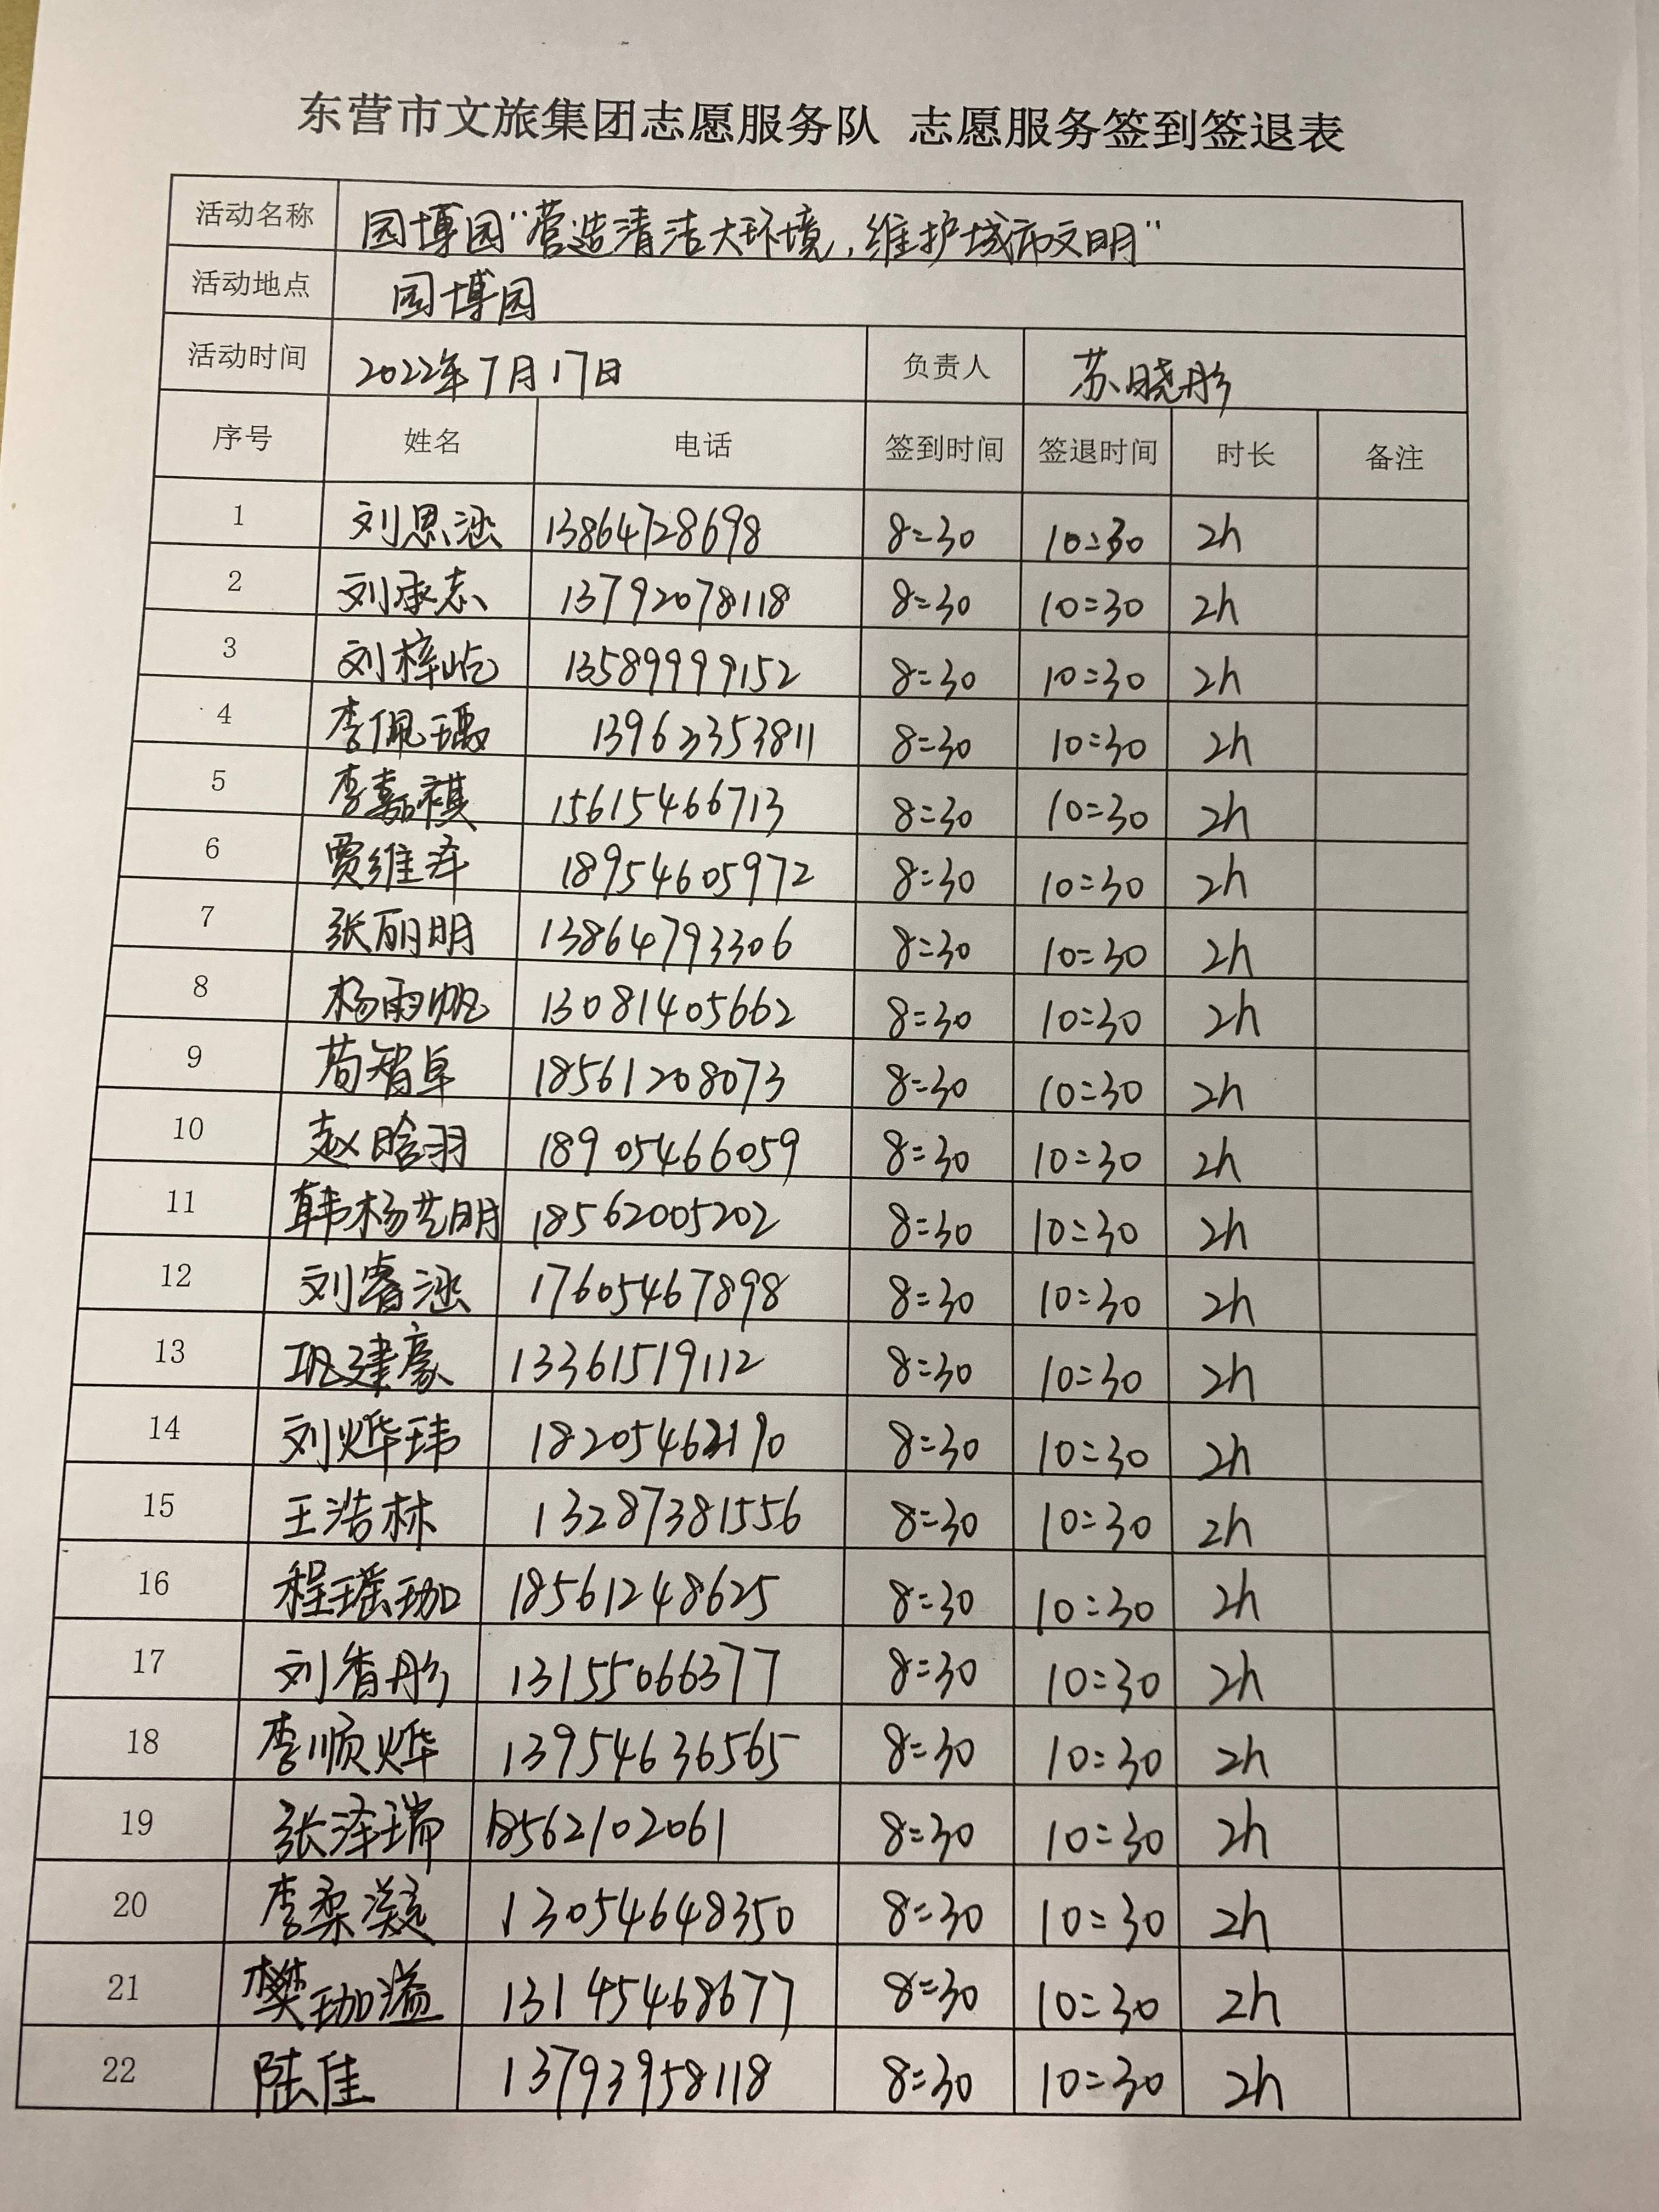 东营市文旅集团志愿服务队 志愿服务签到签退表
活动名称 园博园“营造清洁大环境，维护城市文明”
活动地点 园博园
活动时间 2022年7月17日 负责人 苏晓彤
序号 姓名 电话 签到时间 签退时间 时长 备注
1 刘思涵 13864728698 8:30 10:30 2h
2 刘承志 13792078118 8:30 10:30 2h
3 刘梓屹 13589999152 8:30 10:30 2h
4 李佩瑀 13963353811 8:30 10:30 2h
5 李嘉祺 15615466713 8:30 10:30 2h
6 贾维泽 18954605972 8:30 10:30 2h
7 张丽明 13864793306 8:30 10:30 2h
8 杨雨帆 13081405662 8:30 10:30 2h
9 荀智卓 18561208073 8:30 10:30 2h
10 赵晗羽 18905466059 8:30 10:30 2h
11 韩杨艺明 18562005202 8:30 10:30 2h
12 刘睿涵 17605467898 8:30 10:30 2h
13 巩建豪 13361519112 8:30 10:30 2h
14 刘烨玮 18205462190 8:30 10:30 2h
15 王浩林 13287381556 8:30 10:30 2h
16 程瑶珈 18561248625 8:30 10:30 2h
17 刘香彤 13155066377 8:30 10:30 2h
18 李顺烨 13954636565 8:30 10:30 2h
19 张泽瑞 18562102061 8:30 10:30 2h
20 李柔凝 13054648350 8:30 10:30 2h
21 樊珈溢 13145468677 8:30 10:30 2h
22 陆佳 13793958118 8:30 10:30 2h